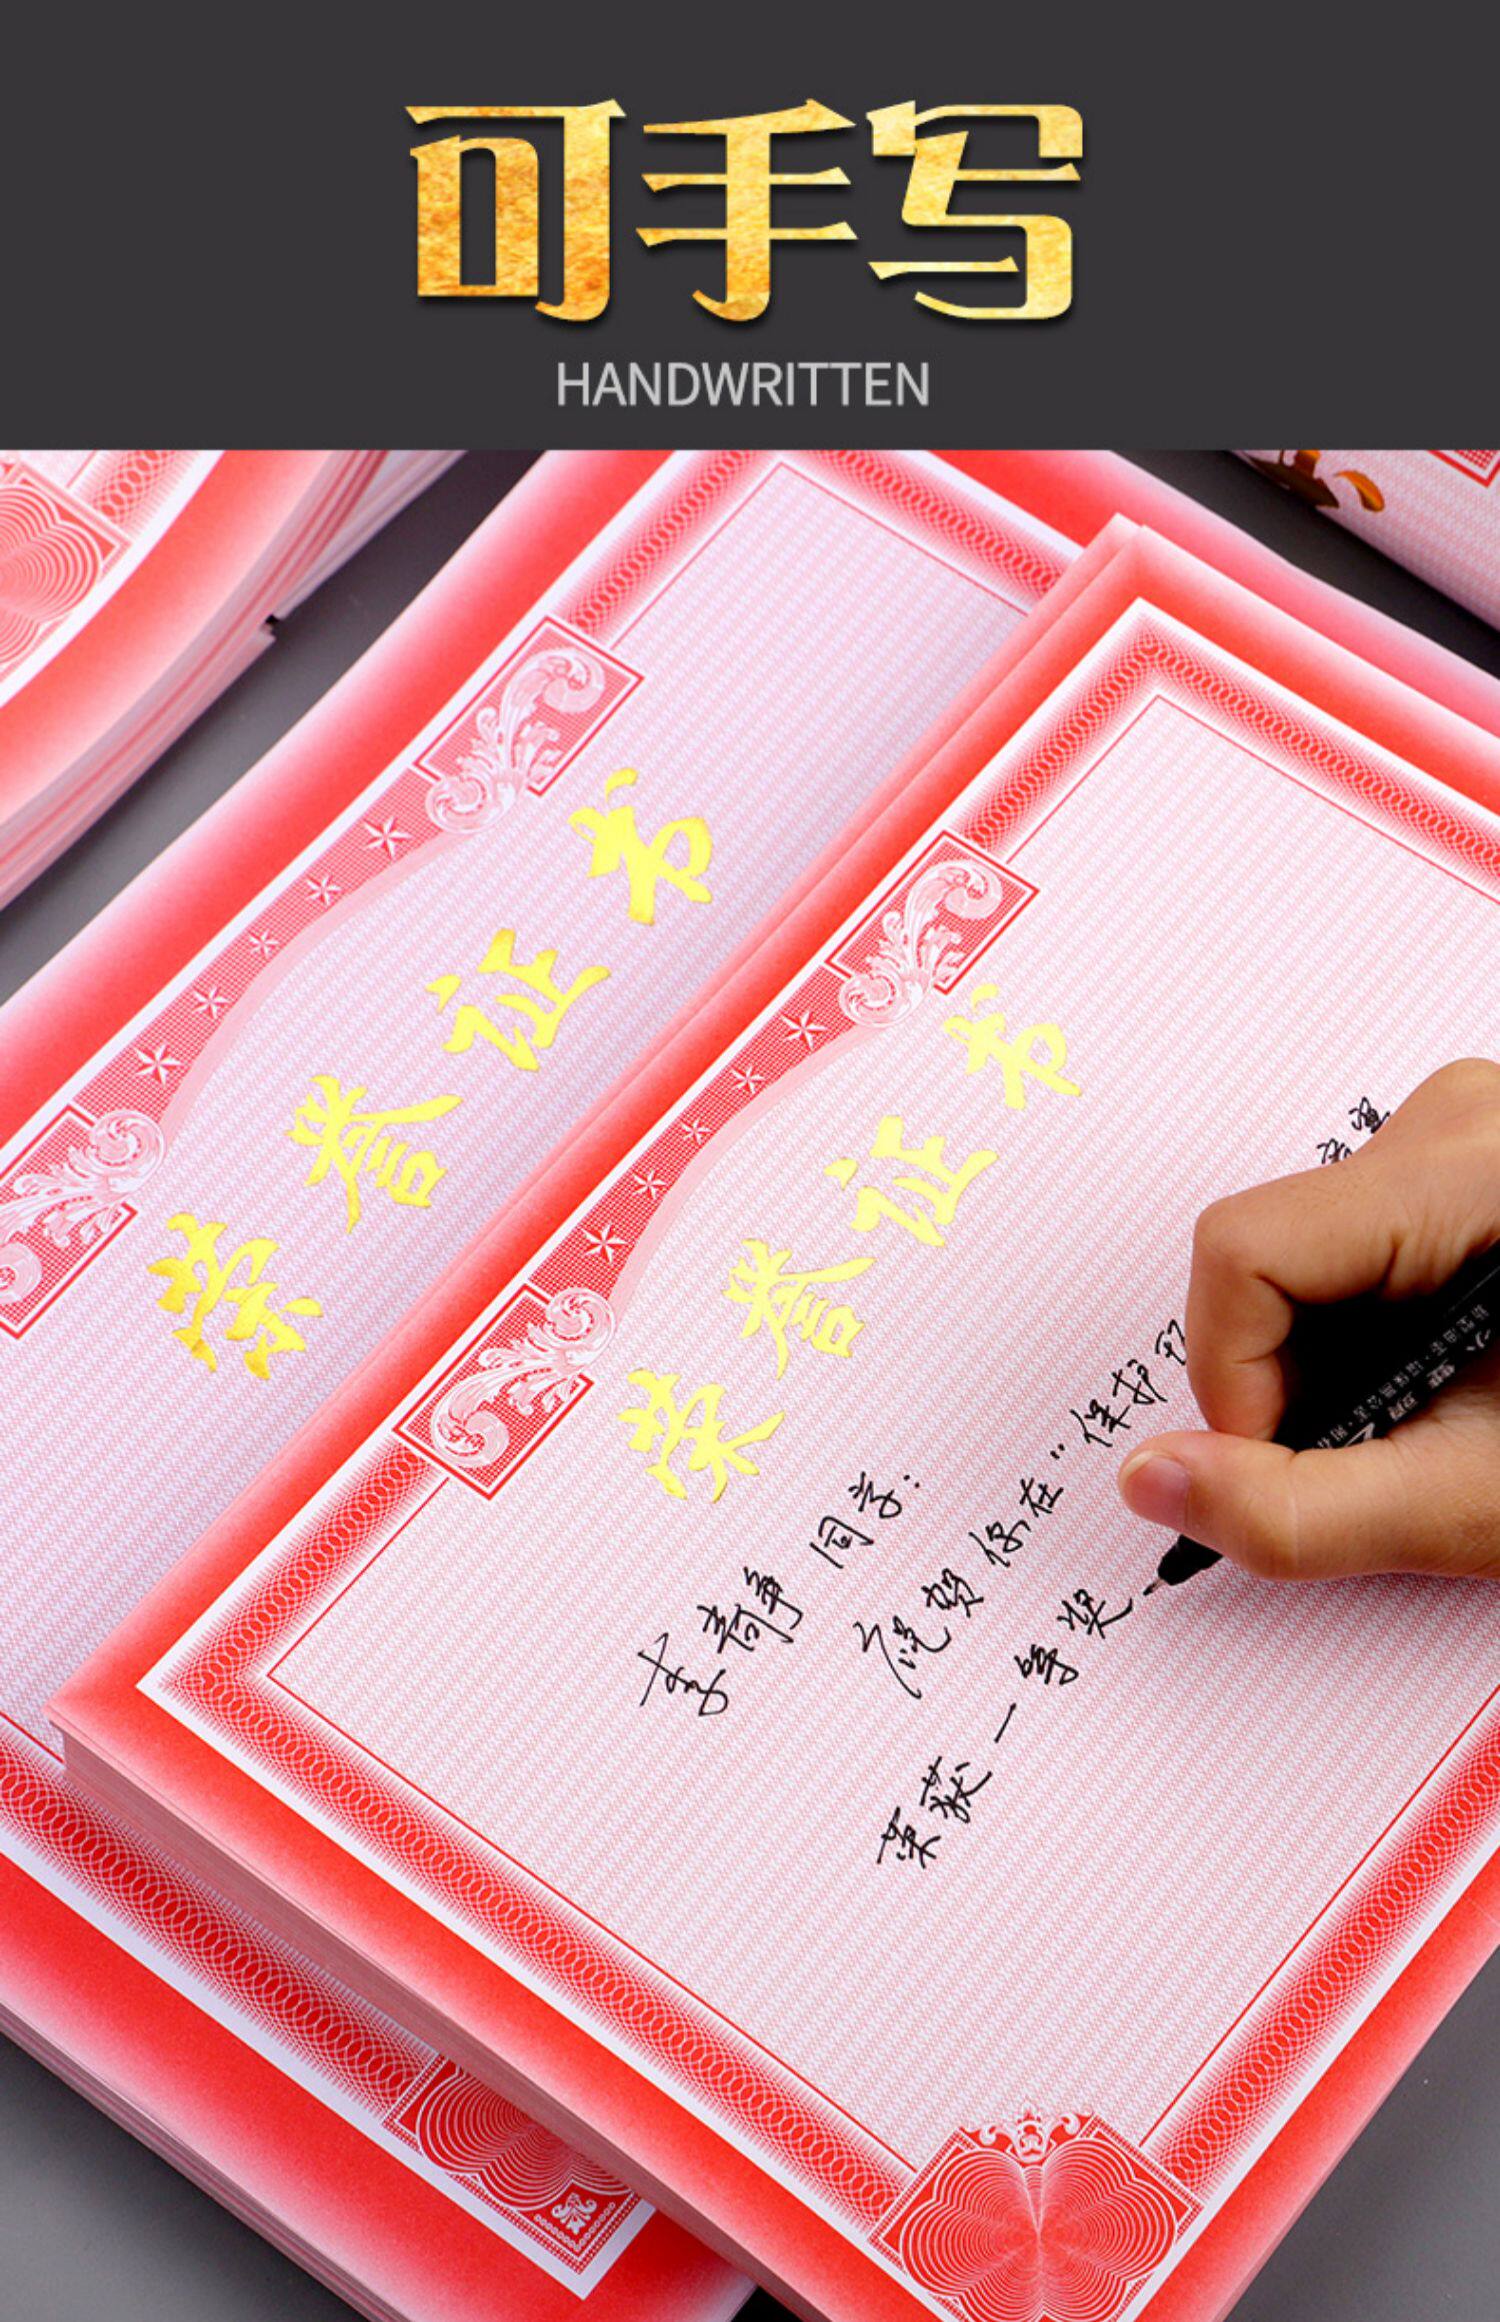 可手写
HANDWRITTEN
荣誉证书
荣誉证书
李静同学：
祝贺你在“保护
荣获一等奖